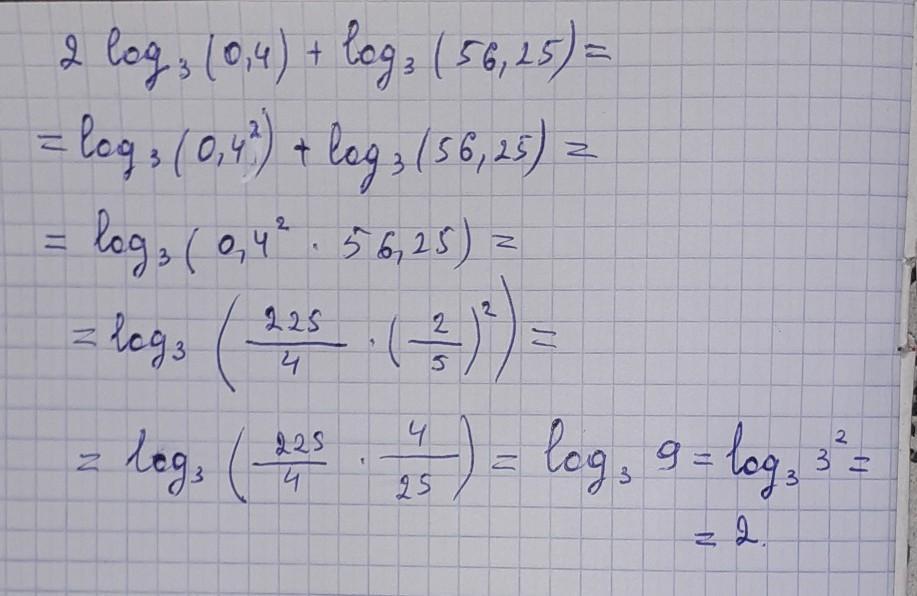 2 log₃(0,4) + log₃(56,25) =
= log₃(0,4²) + log₃(56,25) =
= log₃(0,4² · 56,25) =
= log₃(225/4 · (2/5)²) =
= log₃(225/4 · 4/25) = log₃ 9 = log₃ 3² =
= 2.